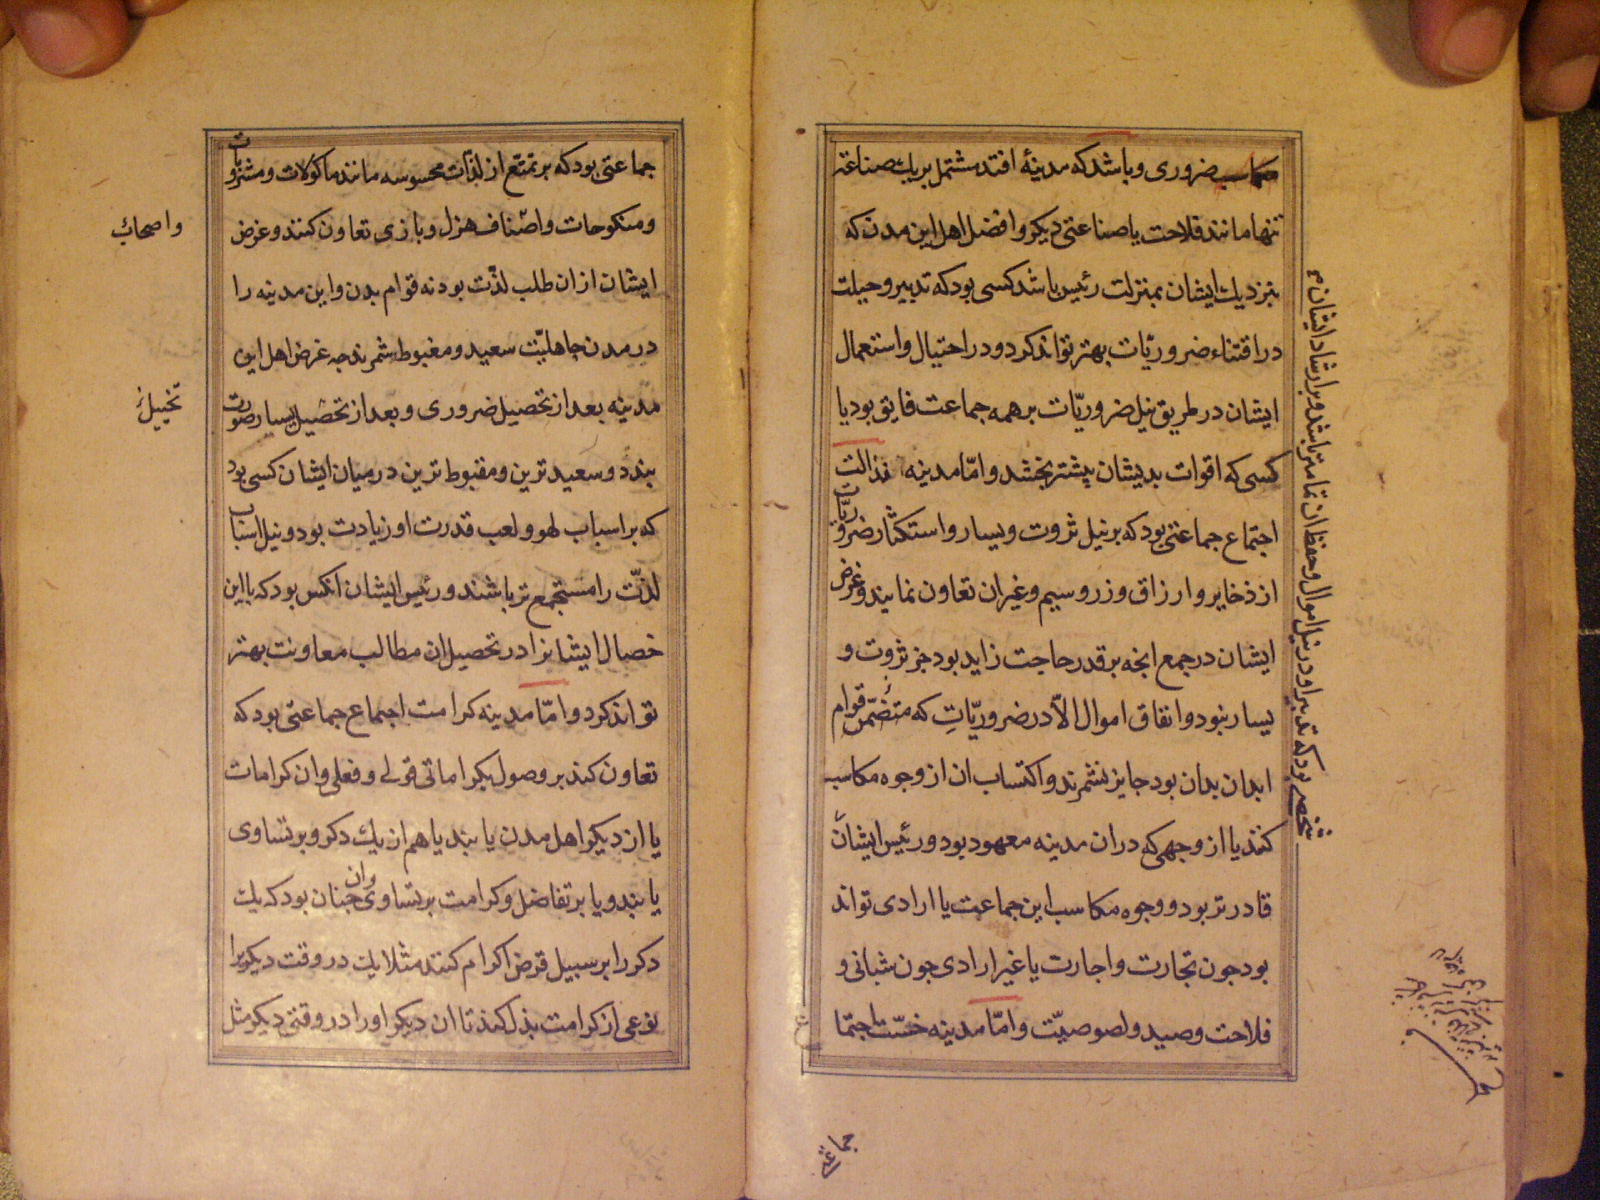 مکاسب ضروری و باشد که مدینهٔ افتد مشتمل بر یک صناعة
تنها مانند فلاحت یا صناعتی دیکر و افضل اهل این مدن که
بنزدیک ایشان بمنزلت رئیس باشد کسی بود که تدبیر و حیلت
در اقتناء ضروریّات بهتر تواند کرد و در احتیال و استعمال
ایشان در طریق نیل ضروریّات بر همه جماعت فایق بود یا
کسی که اقوات بدیشان بیشتر بخشد و امّا مدینه نذالت
اجتماع جماعتی بود که بر نیل ثروت و یسار و استکثار ضروریّات
از ذخایر و ارزاق و زر و سیم و غیر ان تعاون نمایند و غرض
ایشان در جمع انچه بر قدر حاجت زاید بود جز ثروت و
یسار نبود و انفاق اموال الّا در ضروریّاتِ که متضمّن قوام
ابدان بدان بود جایز نشمرند و اکتساب ان از وجوه مکاسب
کنند یا از وجهی که در ان مدینه معهود بود و رئیس ایشان
قادرتر بود و وجوه مکاسب این جماعت یا ارادی تواند
بود جون تجارت و اجارت یا غیر ارادی جون شبانی و
فلاحت و صید و لصوصیّت و امّا مدینه خسّت اجتما
شخصی بود که تدبیر او در نیل اموال و حفظ ان تمامتر باشد و بر ارشاد ایشان
جماعتی بود که بر تمتّع از لذّات محسوسه مانند ماکولات و مشروبات
و منکوحات و اصناف هزل و بازی تعاون کنند و غرض
واصحاب
ایشان از ان طلب لذّت بود نه قوام بدن و این مدینه را
در مدن جاهلیّت سعید و مغبوط شمرند جه غرض اهل این
مدینه بعد از تحصیل ضروری و بعد از تحصیل یسار صورت
بندد و سعیدترین و مغبوط ترین در میان ایشان کسی بود
که بر اسباب لهو و لعب قدرت او زیادت بود و نیل اسباب
لذّت را مستجمع تر باشند و رئیس ایشان انکس بود که با این
خصال ایشانرا در تحصیل ان مطالب معاونت بهتر
تواند کرد و امّا مدینه کرامت اجتماع جماعتی بود که
تعاون کنند بر وصول بکراماتی قولی و فعلی و ان کرامات
یا از دیکر اهل مدن یابند یا هم از یک دکر و بر تساوی
یابند و یا بر تفاضل و کرامت بر تساوی وان جنان بود که یک
دکر را بر سبیل قرض اکرام کنند مثلا یک در وقت دیکریرا
نوعی از کرامت بذل کند تا ان دیکر او را در وقتی دیکر مثل